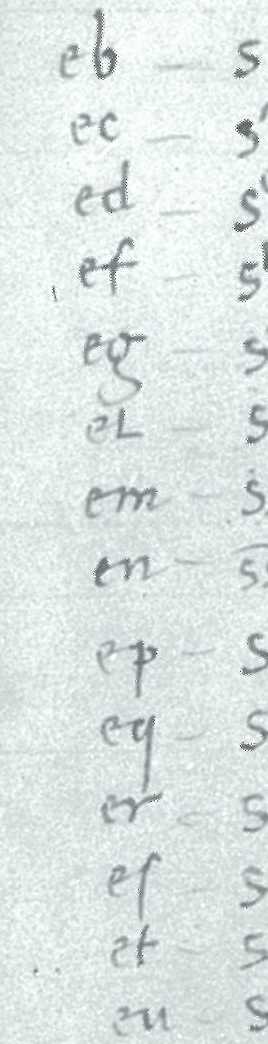 eb - s
ec - s'
ed - s
ef - s
eg - s
eL - s
em - s
en - ss
ep - s
eq - s
er - s
eſ - s
et - s
eu - s